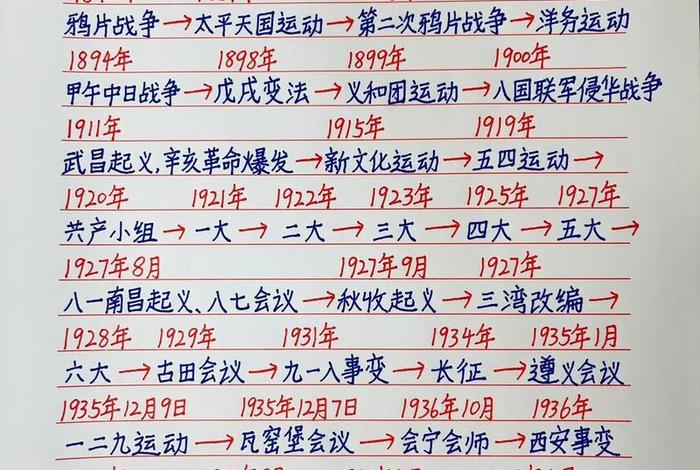 鸦片战争→太平天国运动→第二次鸦片战争→洋务运动
1894年 1898年 1899年 1900年
甲午中日战争→戊戌变法→义和团运动→八国联军侵华战争
1911年 1915年 1919年
武昌起义,辛亥革命爆发→新文化运动→五四运动→
1920年 1921年 1922年 1923年 1925年 1927年
共产小组→一大→二大→三大→四大→五大→
1927年8月 1927年9月 1927年
八一南昌起义、八七会议→秋收起义→三湾改编→
1928年 1929年 1931年 1934年 1935年1月
六大→古田会议→九一八事变→长征→遵义会议
1935年12月9日 1935年12月7日 1936年10月 1936年
一二九运动→瓦窑堡会议→会宁会师→西安事变